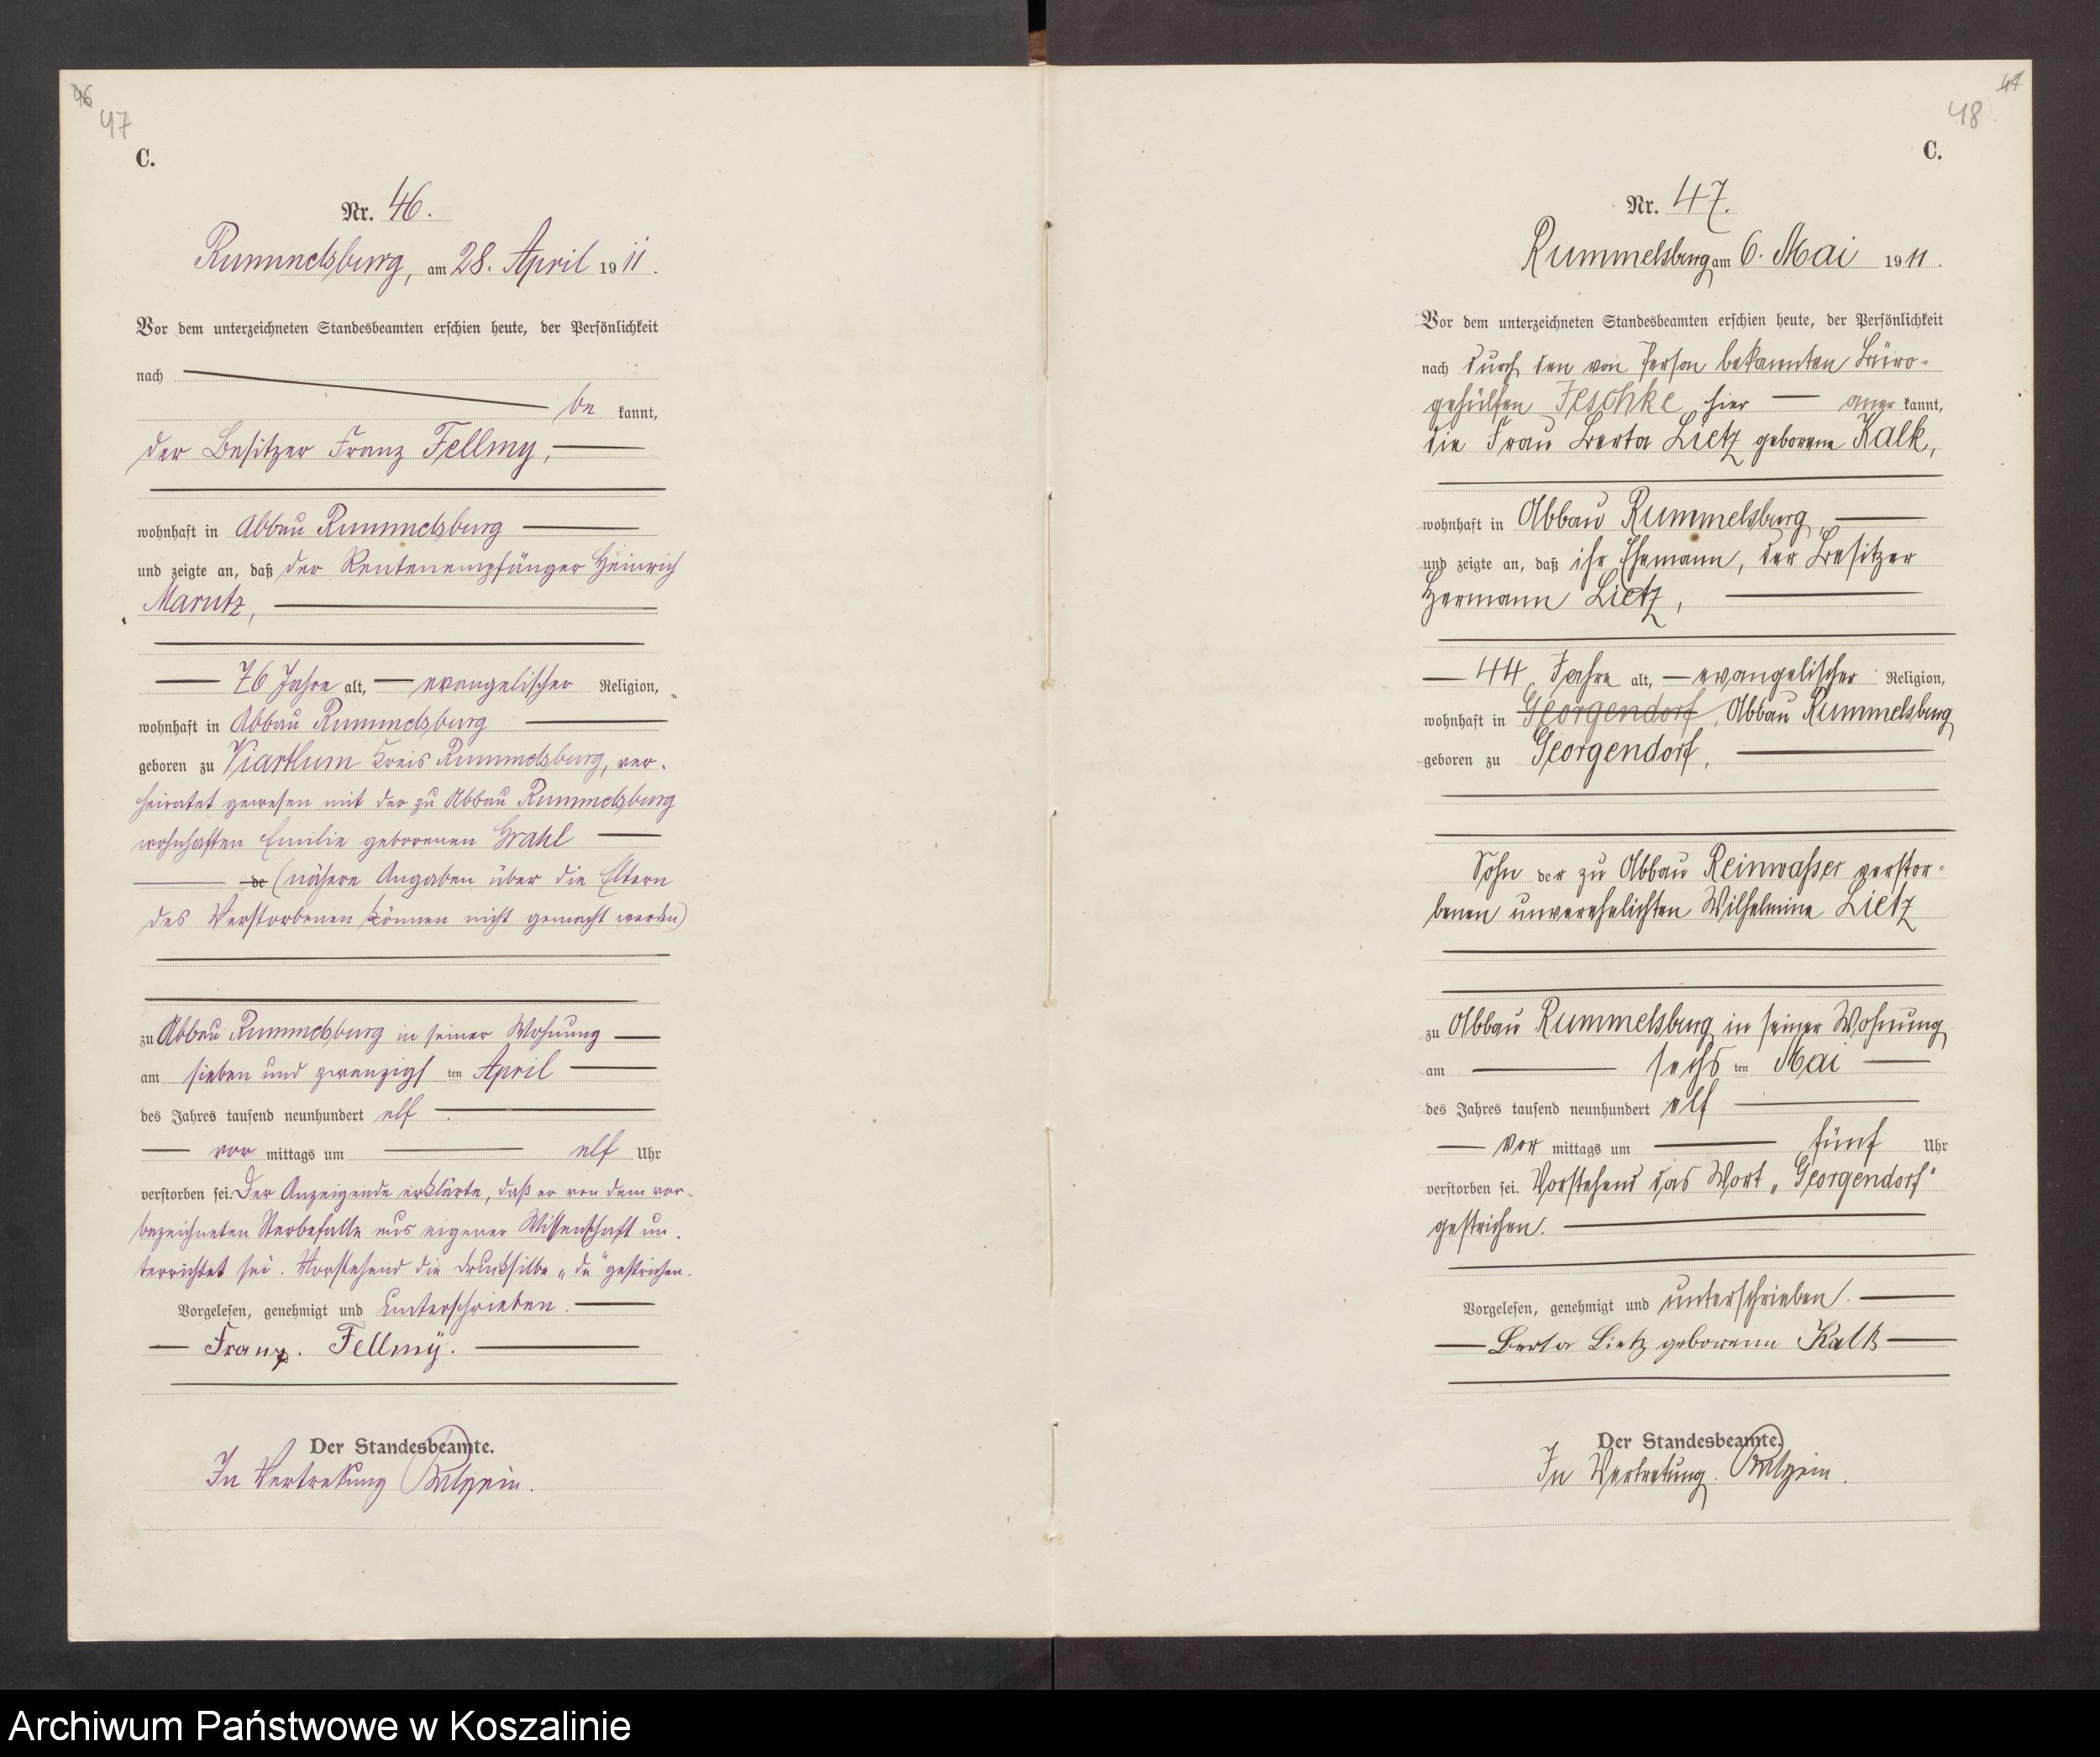 46
47
C.
Nr. 46.
Rummelsburg, am 28. April 1911.
Vor dem unterzeichneten Standesbeamten erschien heute, der Persönlichkeit
nach
be kannt,
der Besitzer Franz Fellmy,
wohnhaft in Abbau Rummelsburg
und zeigte an, daß der Rentenempfänger Heinrich
Marutz,
76 Jahre alt, evangelischer Religion,
wohnhaft in Abbau Rummelsburg
geboren zu Viartlum Kreis Rummelsburg, ver-
heiratet gewesen mit der zu Abbau Rummelsburg
wohnhaften Emilie geborenen Grahl
de (nähere Angaben über die Eltern
des Verstorbenen können nicht gemacht werden)
zu Abbau Rummelsburg in seiner Wohnung
am sieben und zwanzigs ten April
des Jahres tausend neunhundert elf
vor mittags um elf Uhr
verstorben sei. Der Anzeigende erklärte, daß er von dem vor-
bezeichneten Sterbefalle aus eigener Wissenschaft un-
terrichtet sei. Vorstehend die Drucksilbe „de" gestrichen.
Vorgelesen, genehmigt und unterschrieben.
Franz. Fellmÿ.
Der Standesbeamte.
In Vertretung
47
48
C.
Nr. 47.
Rummelsburg am 6. Mai 1911.
Vor dem unterzeichneten Standesbeamten erschien heute, der Persönlichkeit
nach durch den von Person bekannten Büro-
gehülfen Jeschke hier aner kannt,
die Frau Berta Lietz geborene Kalk,
wohnhaft in Abbau Rummelsburg
und zeigte an, daß ihr Ehemann, der Besitzer
Hermann Lietz,
44 Jahre alt, evangelischer Religion,
wohnhaft in Georgendorf, Abbau Rummelsburg
geboren zu Georgendorf,
Sohn der zu Abbau Reinwasser verstor-
benen unverehelichten Wilhelmine Lietz
zu Abbau Rummelsburg in seiner Wohnung
am sechs ten Mai
des Jahres tausend neunhundert elf
vor mittags um fünf Uhr
verstorben sei. Vorstehend das Wort „Georgendorf"
gestrichen.
Vorgelesen, genehmigt und unterschrieben.
Berta Lietz geborene Kalk
Der Standesbeamte.
In Vertretung.
Archiwum Państwowe w Koszalinie